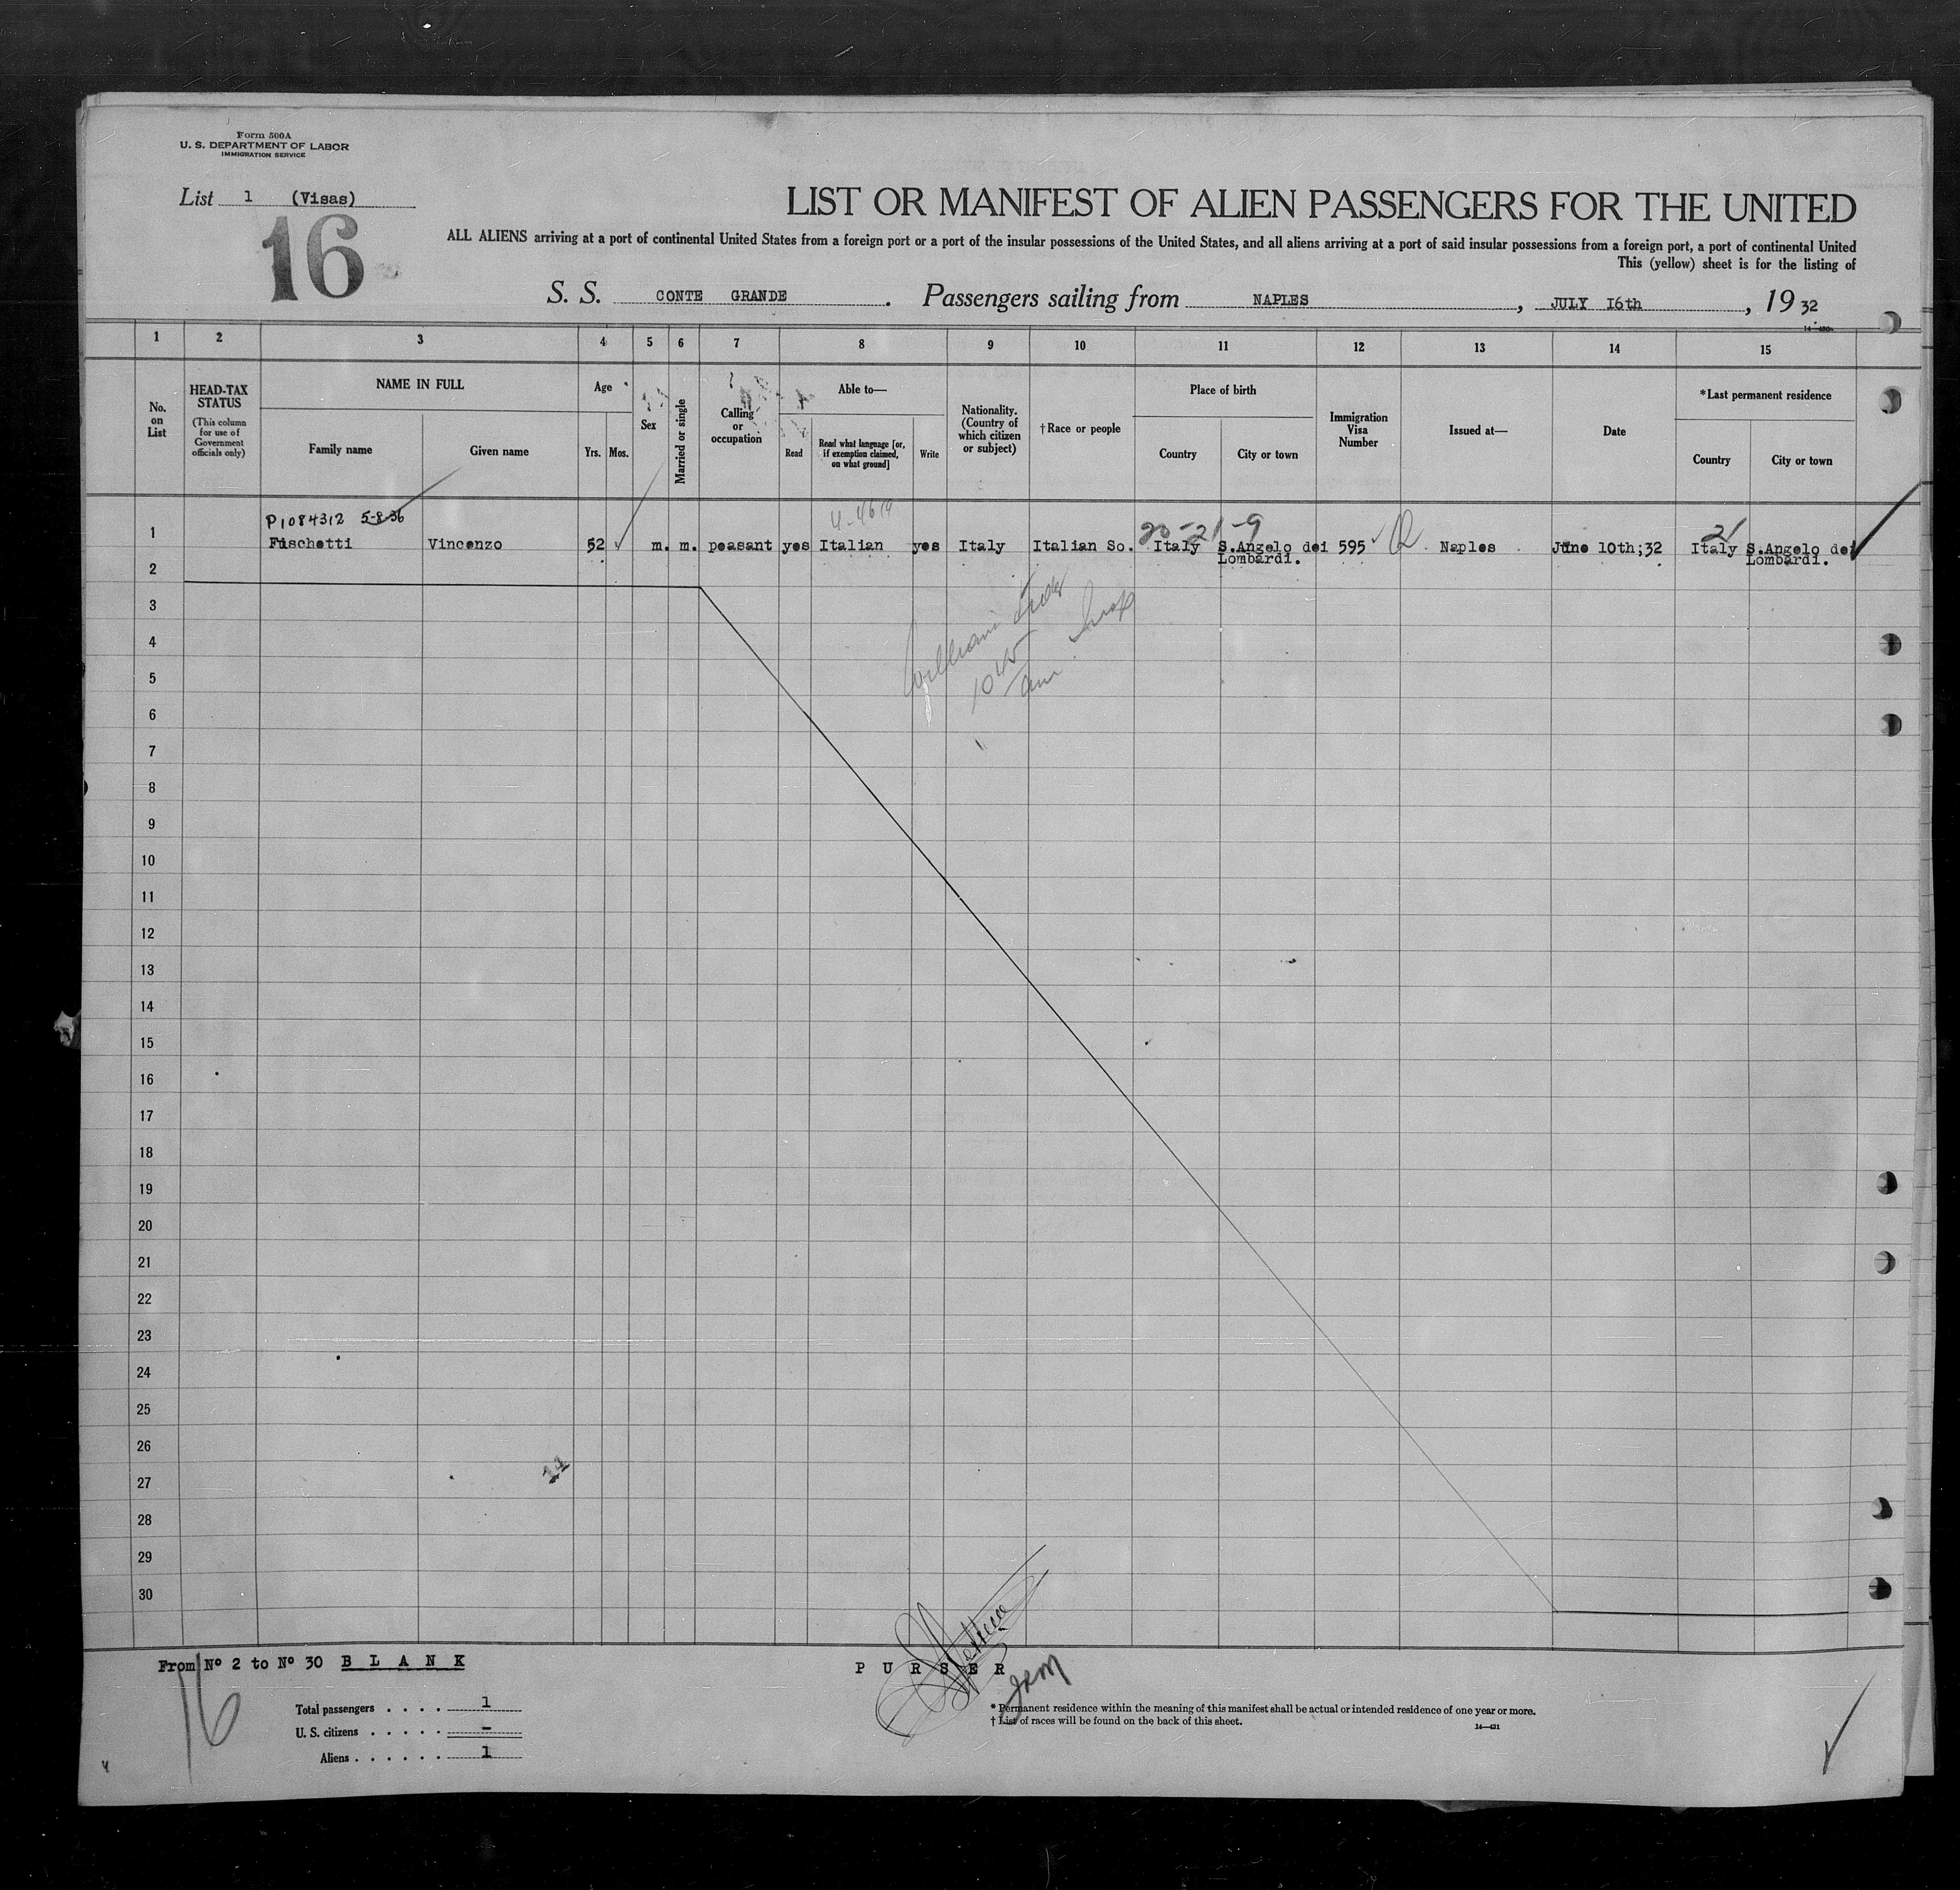 Form 500A
U. S. DEPARTMENT OF LABOR
IMMIGRATION SERVICE
List 1 (Visas)
16
LIST OR MANIFEST OF ALIEN PASSENGERS FOR THE UNITED
ALL ALIENS arriving at a port of continental United States from a foreign port or a port of the insular possessions of the United States, and all aliens arriving at a port of said insular possessions from a foreign port, a port of continental United
This (yellow) sheet is for the listing of
S. S. CONTE GRANDE. Passengers sailing from NAPLES, JULY 16th, 19 32
1 2 3 4 5 6 7 8 9 10 11 12 13 14 15
No. on List
HEAD-TAX STATUS
(This column for use of Government officials only)
NAME IN FULL
Family name
Given name
Age
Yrs. Mos.
Sex
Married or single
Calling or occupation
Able to—
Read
Read what language [or, if exemption claimed, on what ground]
Write
Nationality. (Country of which citizen or subject)
†Race or people
Place of birth
Country
City or town
Immigration Visa Number
Issued at—
Date
*Last permanent residence
Country
City or town
P1084312 5-8-36
20-21-9
21
1 Fischetti Vincenzo 52 m. m. peasant yes Italian yes Italy Italian So. Italy S.Angelo dei 595 Naples June 10th;32 Italy S.Angelo dei
Lombardi. Lombardi.
2
3
4
5
6
7
8
9
10
11
12
13
14
15
16
17
18
19
20
21
22
23
24
25
26
27
28
29
30
10 45
am
From Nº 2 to Nº 30 B L A N K
P U R S E R
16
Total passengers . . . . 1
U. S. citizens . . . . . –
Aliens . . . . . . 1
* Permanent residence within the meaning of this manifest shall be actual or intended residence of one year or more.
† List of races will be found on the back of this sheet.
14—421